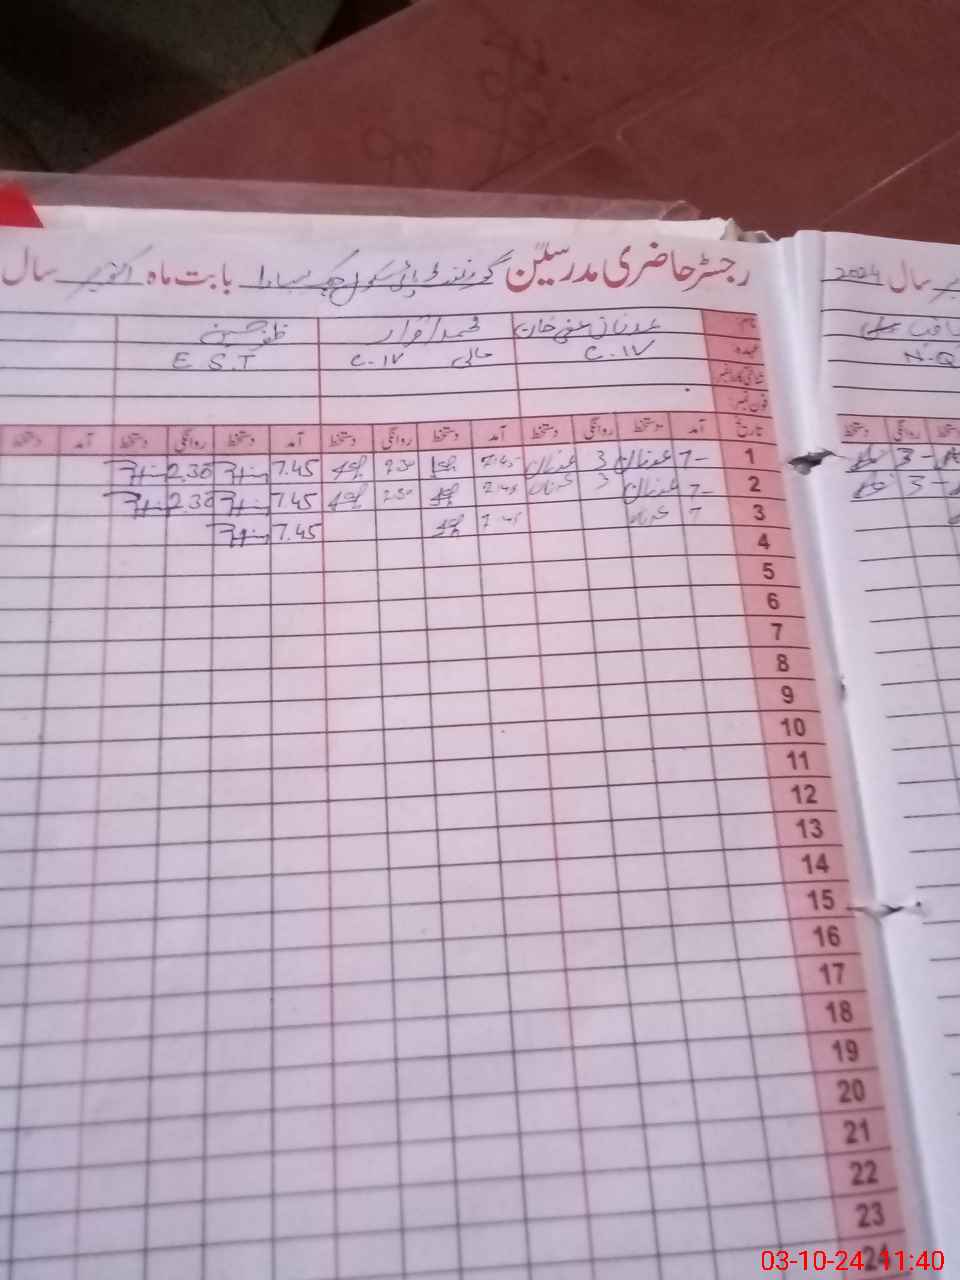 رجسٹر حاضری مدرسین گورنمنٹ ہائی سکول چک بابت ماہ اکتوبر سال
سال 2024
نام: عدنان غنی خان محمد اقرار ظفر حسین
عہدہ: C.IV مالی C.IV E.S.T
N.Q
شناختی کارڈ نمبر
فون نمبر:
تاریخ آمد دستخط روانگی دستخط آمد دستخط روانگی دستخط آمد دستخط روانگی دستخط آمد دستخط
دستخط روانگی دستخط
1 7- عدنان 3 عدنان 7.45 2.30 7.45 2.30
3-
2 7- عدنان 3 عدنان 7.45 2.30 7.45 2.30
3-
3 7 عدنان 7.45 7.45
4
5
6
7
8
9
10
11
12
13
14
15
16
17
18
19
20
21
22
23
24
03-10-24 11:40